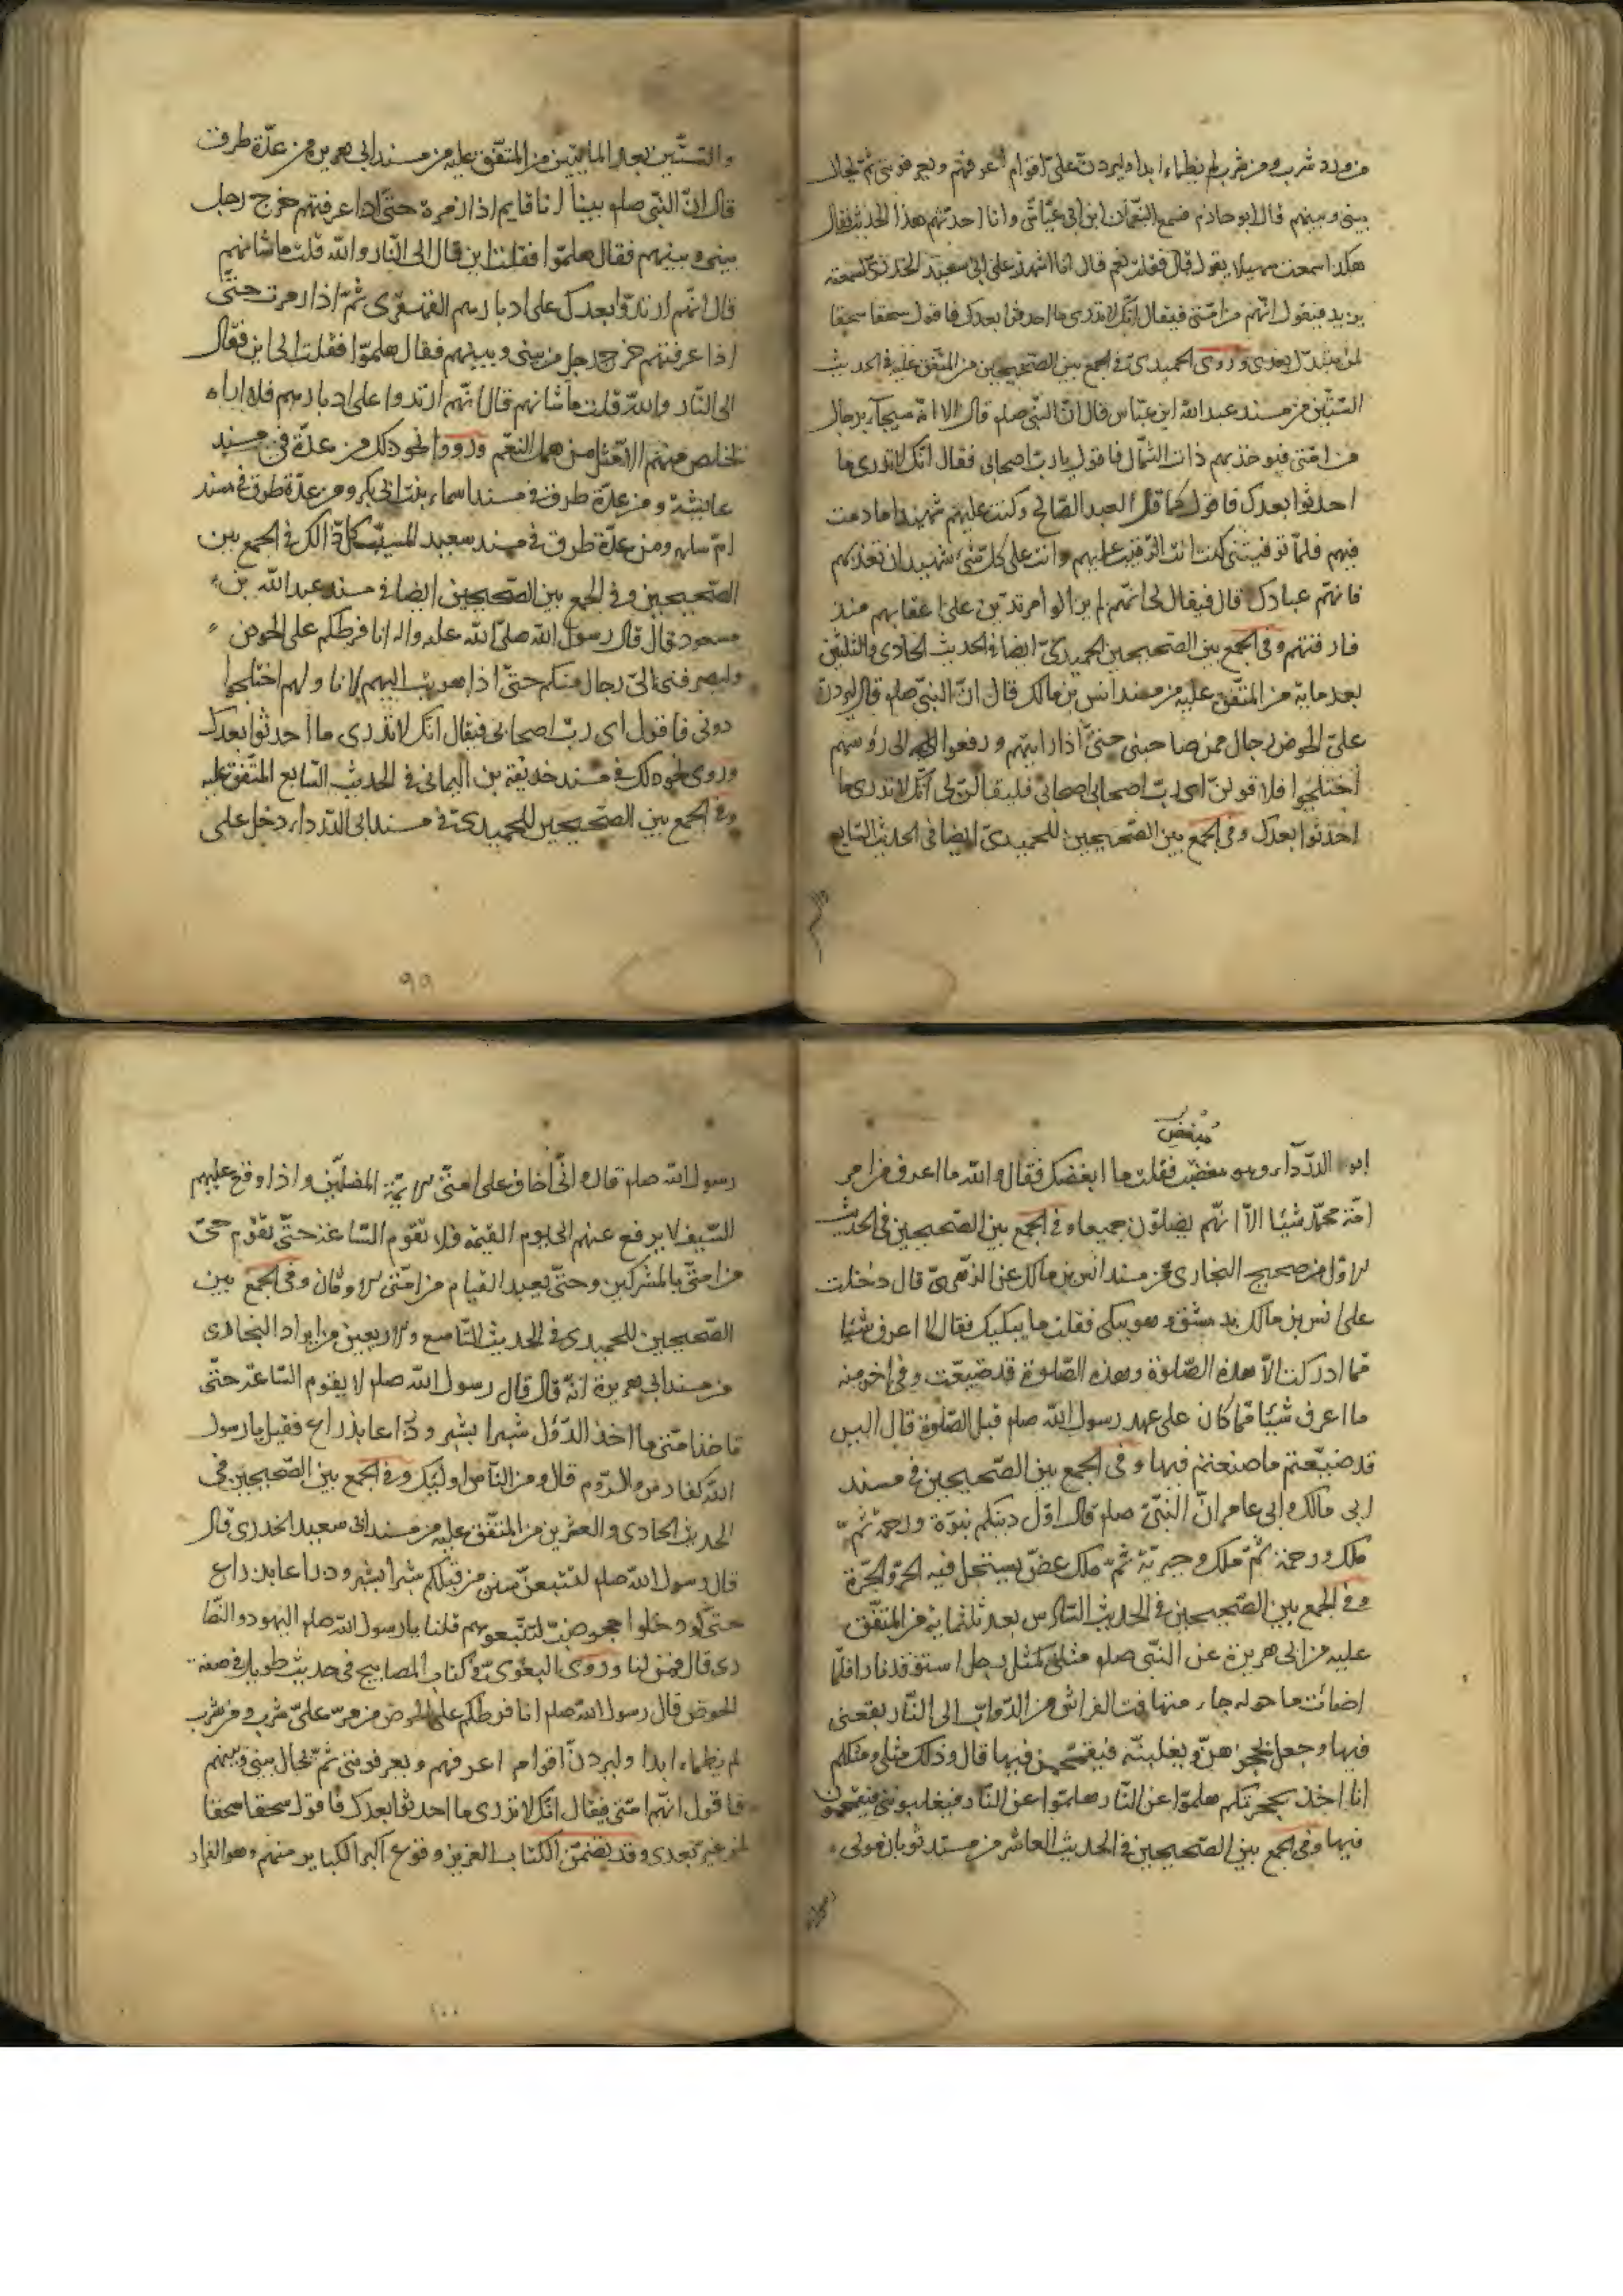 من ورد شرب ومن شرب لم يظماء ابدا وليردن على اقوام اعرفهم ويعرفونى ثم يحال
بينى وبينهم قال ابو حازم فسمع النعمان ابن ابى عياش وانا احدثهم هذا الحديث فقال
هكذا سمعت سهيلا يقول قال فقلت نعم قال انا اشهد على ابى سعيد الخدرى لسمعته
يزيد فيقول انهم من امتى فيقال انك لا تدرى ما احدثوا بعدك فاقول سحقا سحقا
لمن بدل بعدى وروى الحميدى فى الجمع بين الصحيحين من المتفق عليه فى الحديث
الستين من مسند عبد الله ابن عباس قال ان النبى صلم قال الا انه سيجاء برجال
من امتى فيوخذ بهم ذات الشمال فاقول يا رب اصحابى فقال انك لا تدرى ما
احدثوا بعدك فاقول كما قال العبد الصالح وكنت عليهم شهيدا ما دمت
فيهم فلما توفيتنى كنت انت الرقيب عليهم وانت على كل شئ شهيد ان تعذبهم
فانهم عبادك قال فيقال لى انهم لم يزالوا مرتدين على اعقابهم منذ
فارقتهم وفى الجمع بين الصحيحين الحميدى ايضا فى الحديث الحادى والثلثين
بعد مايه من المتفق عليه من مسند انس بن مالك قال ان النبى صلم قال ليردن
على الحوض رجال ممن صاحبنى حتى اذا رايتهم ورفعوا الى رؤسهم
اختلجوا فلاقولن اى رب اصحابى اصحابى فليقالن لى انك لا تدرى ما
احدثوا بعدك وفى الجمع بين الصحيحين للحميدى ايضا فى الحديث السابع
والستين
والستين بعد المايتين من المتفق عليه من مسند ابى هريره من عدة طرق
قال ان النبى صلم بينا انا قايم اذا زمرة حتى اذا عرفتهم خرج رجل
بينى وبينهم فقال هلموا فقلت اين قال الى النار والله قلت ما شانهم
قال انهم ارتدوا بعدك على ادبارهم القهقرى ثم اذا زمرة حتى
اذا عرفتهم خرج رجل من بينى وبينهم فقال هلموا فقلت الى اين فقال
الى النار والله قلت ما شانهم قال انهم ارتدوا على ادبارهم فلا اراه
يخلص منهم الا مثل همل النعم ورووا نحو ذلك من عدة فى مسند
عايشة ومن عدة طرق فى مسند اسماء بنت ابى بكر ومن عدة طرق فى مسند
ام سلمه ومن عدة طرق فى مسند سعيد المسيب كل ذالك فى الجمع بين
الصحيحين وفى الجمع بين الصحيحين ايضا فى مسند عبد الله بن
مسعود قال قال رسول الله صلى الله عليه واله انا فرطكم على الحوض
وليصرفنى الى رجال منكم حتى اذا هويت اليهم لاناولهم اختلجوا
دونى فاقول اى رب اصحابى فيقال انك لا تدرى ما احدثوا بعدك
وروى نحو ذلك فى مسند حذيفة بن اليمانى فى الحديث السابع المتفق عليه
وفى الجمع بين الصحيحين للحميدى فى مسند ابى الدرداء دخل على
٩٩
مبغض
ابو الدرداء وهو مغضب فقلت ما ابغضك فقال والله ما اعرف من امر
امة محمد شيئا الا انهم يصلون جميعا وفى الجمع بين الصحيحين فى الحديث
الاول من صحيح البخارى من مسند انس بن مالك عن الزهرى قال دخلت
على انس بن مالك بدمشق وهو يبكى فقلت ما يبكيك فقال لا اعرف شيئا
مما ادركت الا هذه الصلوة وهذه الصلوة قد ضيعت وفى اخر منه
ما اعرف شيئا مما كان على عهد رسول الله صلم قبل الصلوة قال اليس
قد ضيعتم ما صنعتم فيها وفى الجمع بين الصحيحين فى مسند
ابى مالك وابى عامر ان النبى صلم قال اول دينكم نبوة ورحمة ثم
ملك ورحمة ثم ملك وجبرية ثم ملك عض يستحل فيه الحر والحرة
وفى الجمع بين الصحيحين فى الحديث السادس بعد ثلثمايه من المتفق
عليه من ابى هريرة عن النبى صلم مثلى كمثل رجل استوقد نارا فلما
اضائت ما حوله جاء منها فت الفراش من الدواب الى النار يقعن
فيها وجعل يحجزهن ويغلبنه فيقتحمن فيها قال وذلك مثلى ومثلكم
انا اخذ بحجزتكم هلموا عن النار هلموا عن النار فيغلبونى فيقتحمون
فيها وفى الجمع بين الصحيحين فى الحديث العاشر من مسند ثوبان مولى
رسول الله
رسول الله صلم قال وانى اخاف على امتى الايمة المضلين واذا وقع عليهم
السيف لا يرفع عنهم الى يوم القيمة ولا تقوم الساعة حتى تقوم حى
من امتى بالمشركين وحتى يعبد القيام من امتى الاوثان وفى الجمع بين
الصحيحين للحميدى فى الحديث التاسع والاربعين من ايراد البخارى
من مسند ابى هريرة انه قال قال رسول الله صلم لا يقوم الساعة حتى
تاخذ امتى ما اخذ الاول شبرا بشبر وذراعا بذراع فقيل يا رسول
الله كفارس والروم قال ومن الناس اوليك وفى الجمع بين الصحيحين فى
الحديث الحادى والعشرين من المتفق عليه من مسند ابى سعيد الخدرى قال
قال رسول الله صلم لتتبعن سنن من قبلكم شبرا بشبر وذراعا بذراع
حتى لو دخلوا جحر ضب لتتبعوهم قلنا يا رسول الله صلم اليهود والنصا
رى قال فمن لنا وروى البغوى فى كتاب المصابيح فى حديث طويل فى صفة
الحوض قال رسول الله صلم انا فرطكم على الحوض من مر على شرب ومن شرب
لم يظماء ابدا وليردن اقوام اعرفهم ويعرفونى ثم يحال بينى وبينهم
فاقول انهم امتى فيقال انك لا تدرى ما احدثوا بعدك فاقول سحقا سحقا
لمن غير بعدى وقد تضمن الكتاب العزيز وقوع اكبر الكباير منهم وهو الفرار
١٠٠